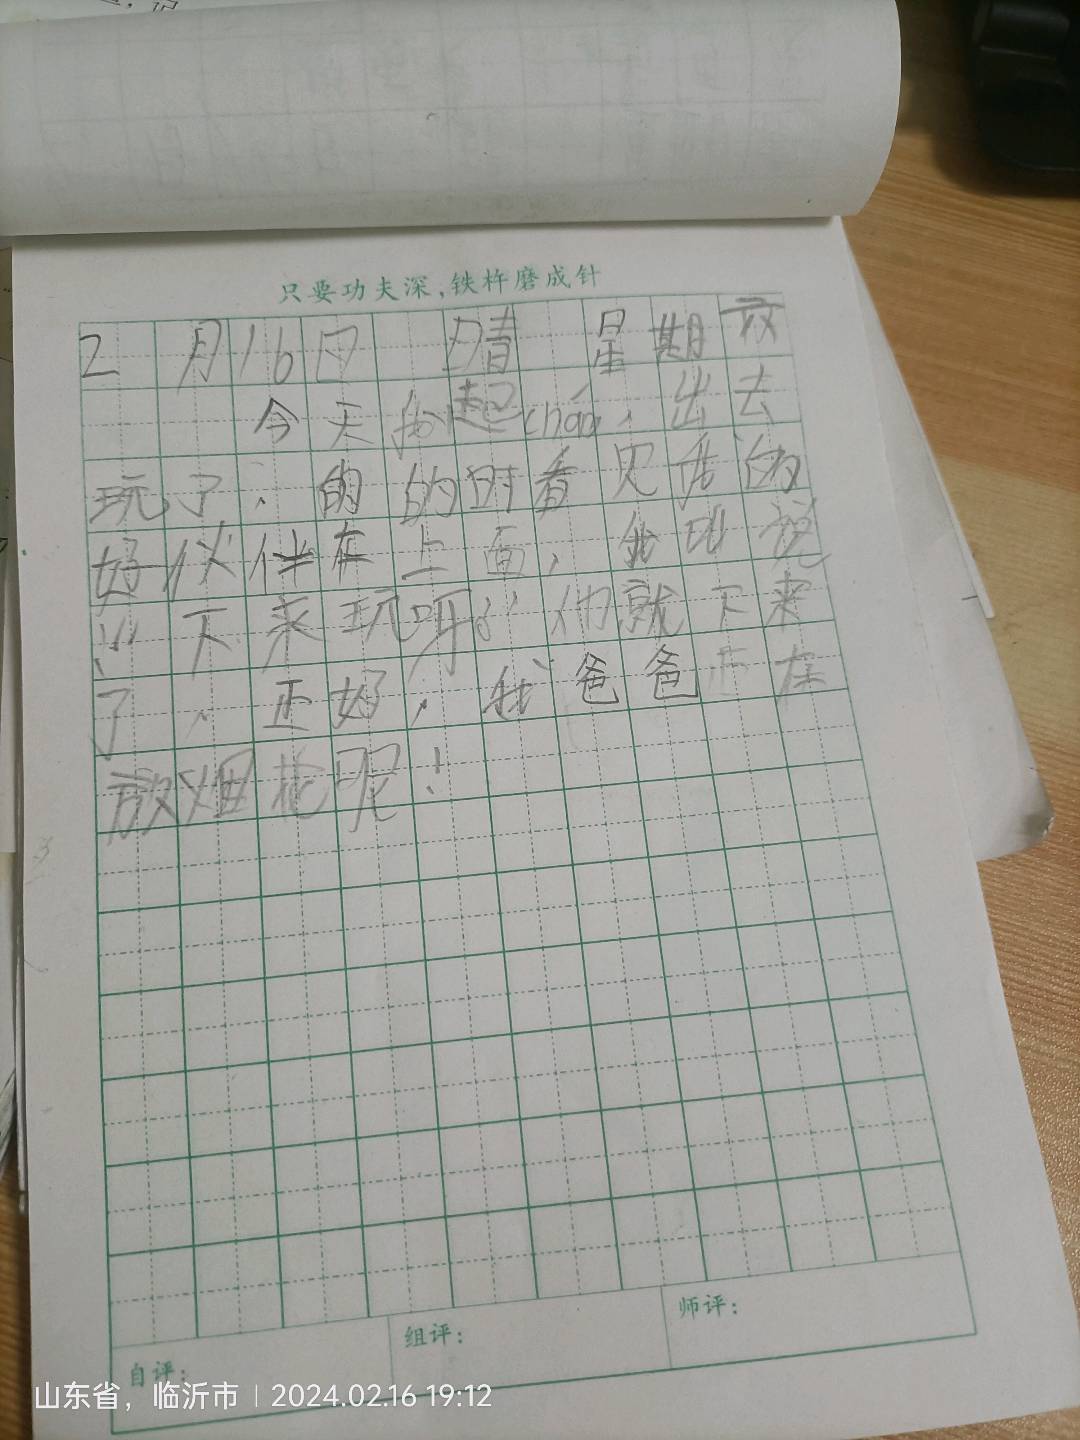 只要功夫深，铁杵磨成针
2月16日 晴 星期
今天我起cháng，出去
玩了，的的时看见我的
好伙伴在上面，我叫说
"下来玩呀"他就下来
了，正好，我爸爸正在
放烟花呢！
自评：
组评：
师评：
山东省，临沂市 | 2024.02.16 19:12